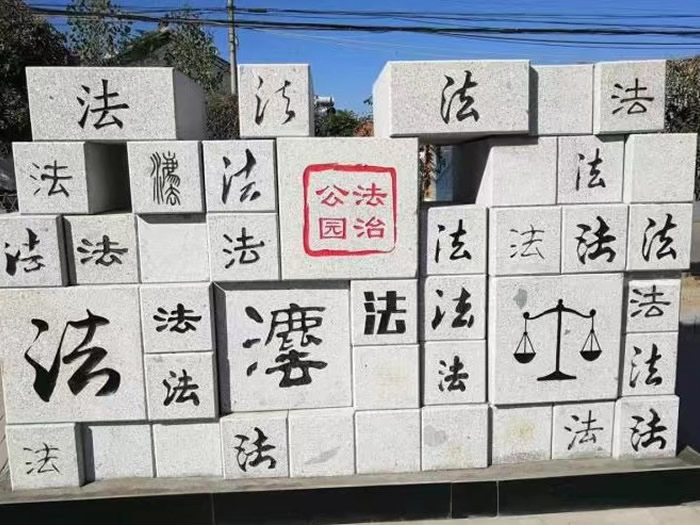 法 法 法 法
法 灋 法
法治
公园
法
法 法 法 法 法 法 法
法 法 灋 法 法 法
法 法 法
法 法 法 法